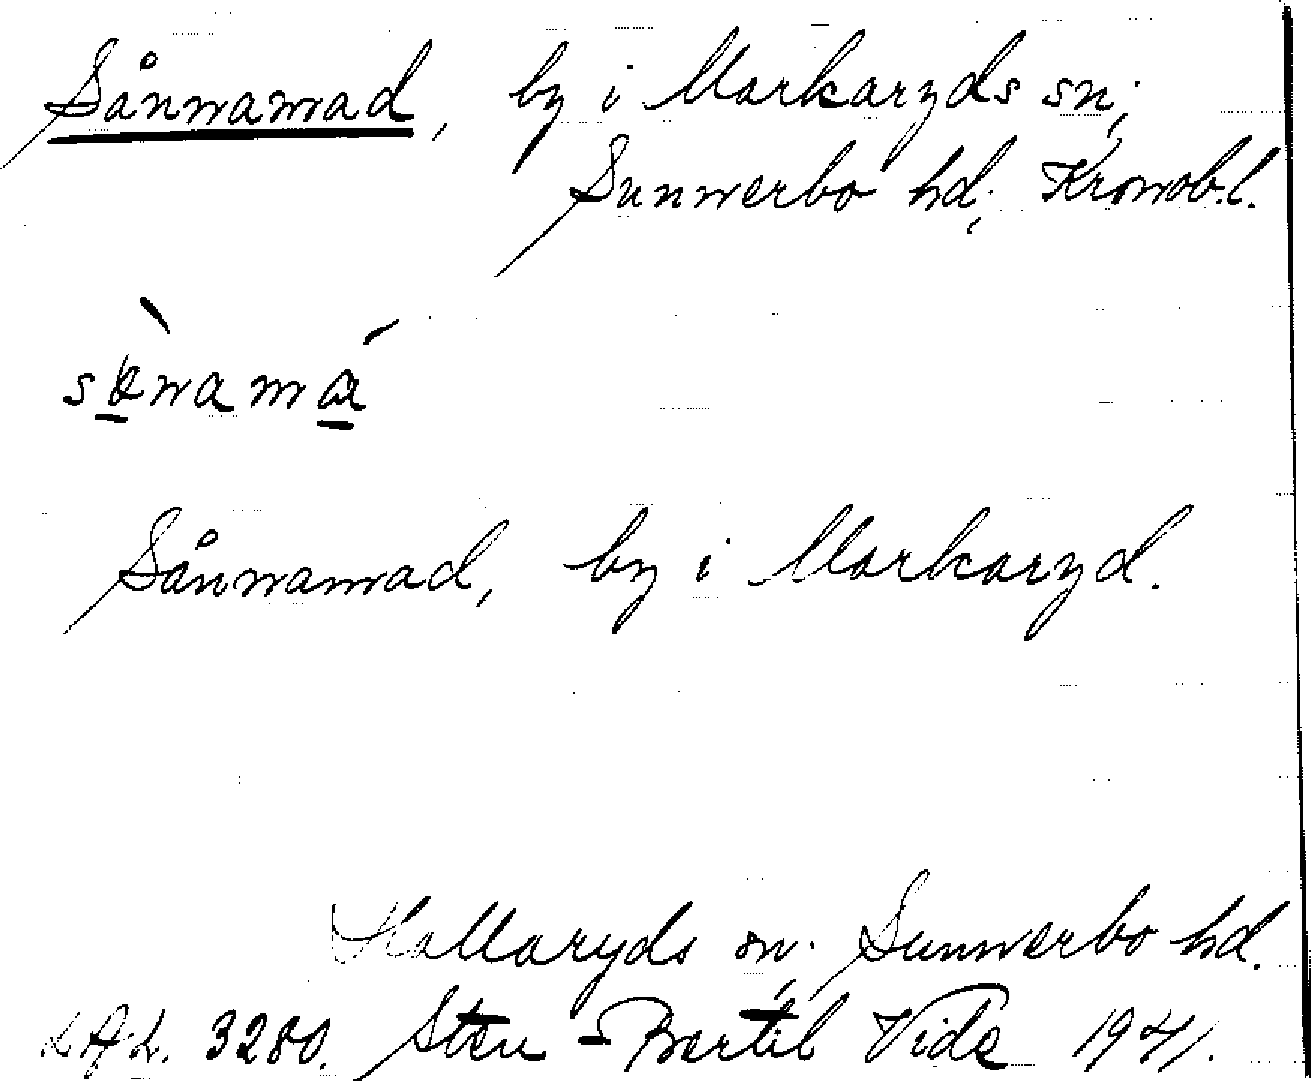 Sånnamad, by i Markaryds sn;
Sunnerbo hd; Kronob.l.
Sånnamad, by i Markaryd.
Hallaryds sn; Sunnerbo hd.
Sten-Bertil Vide 1941.